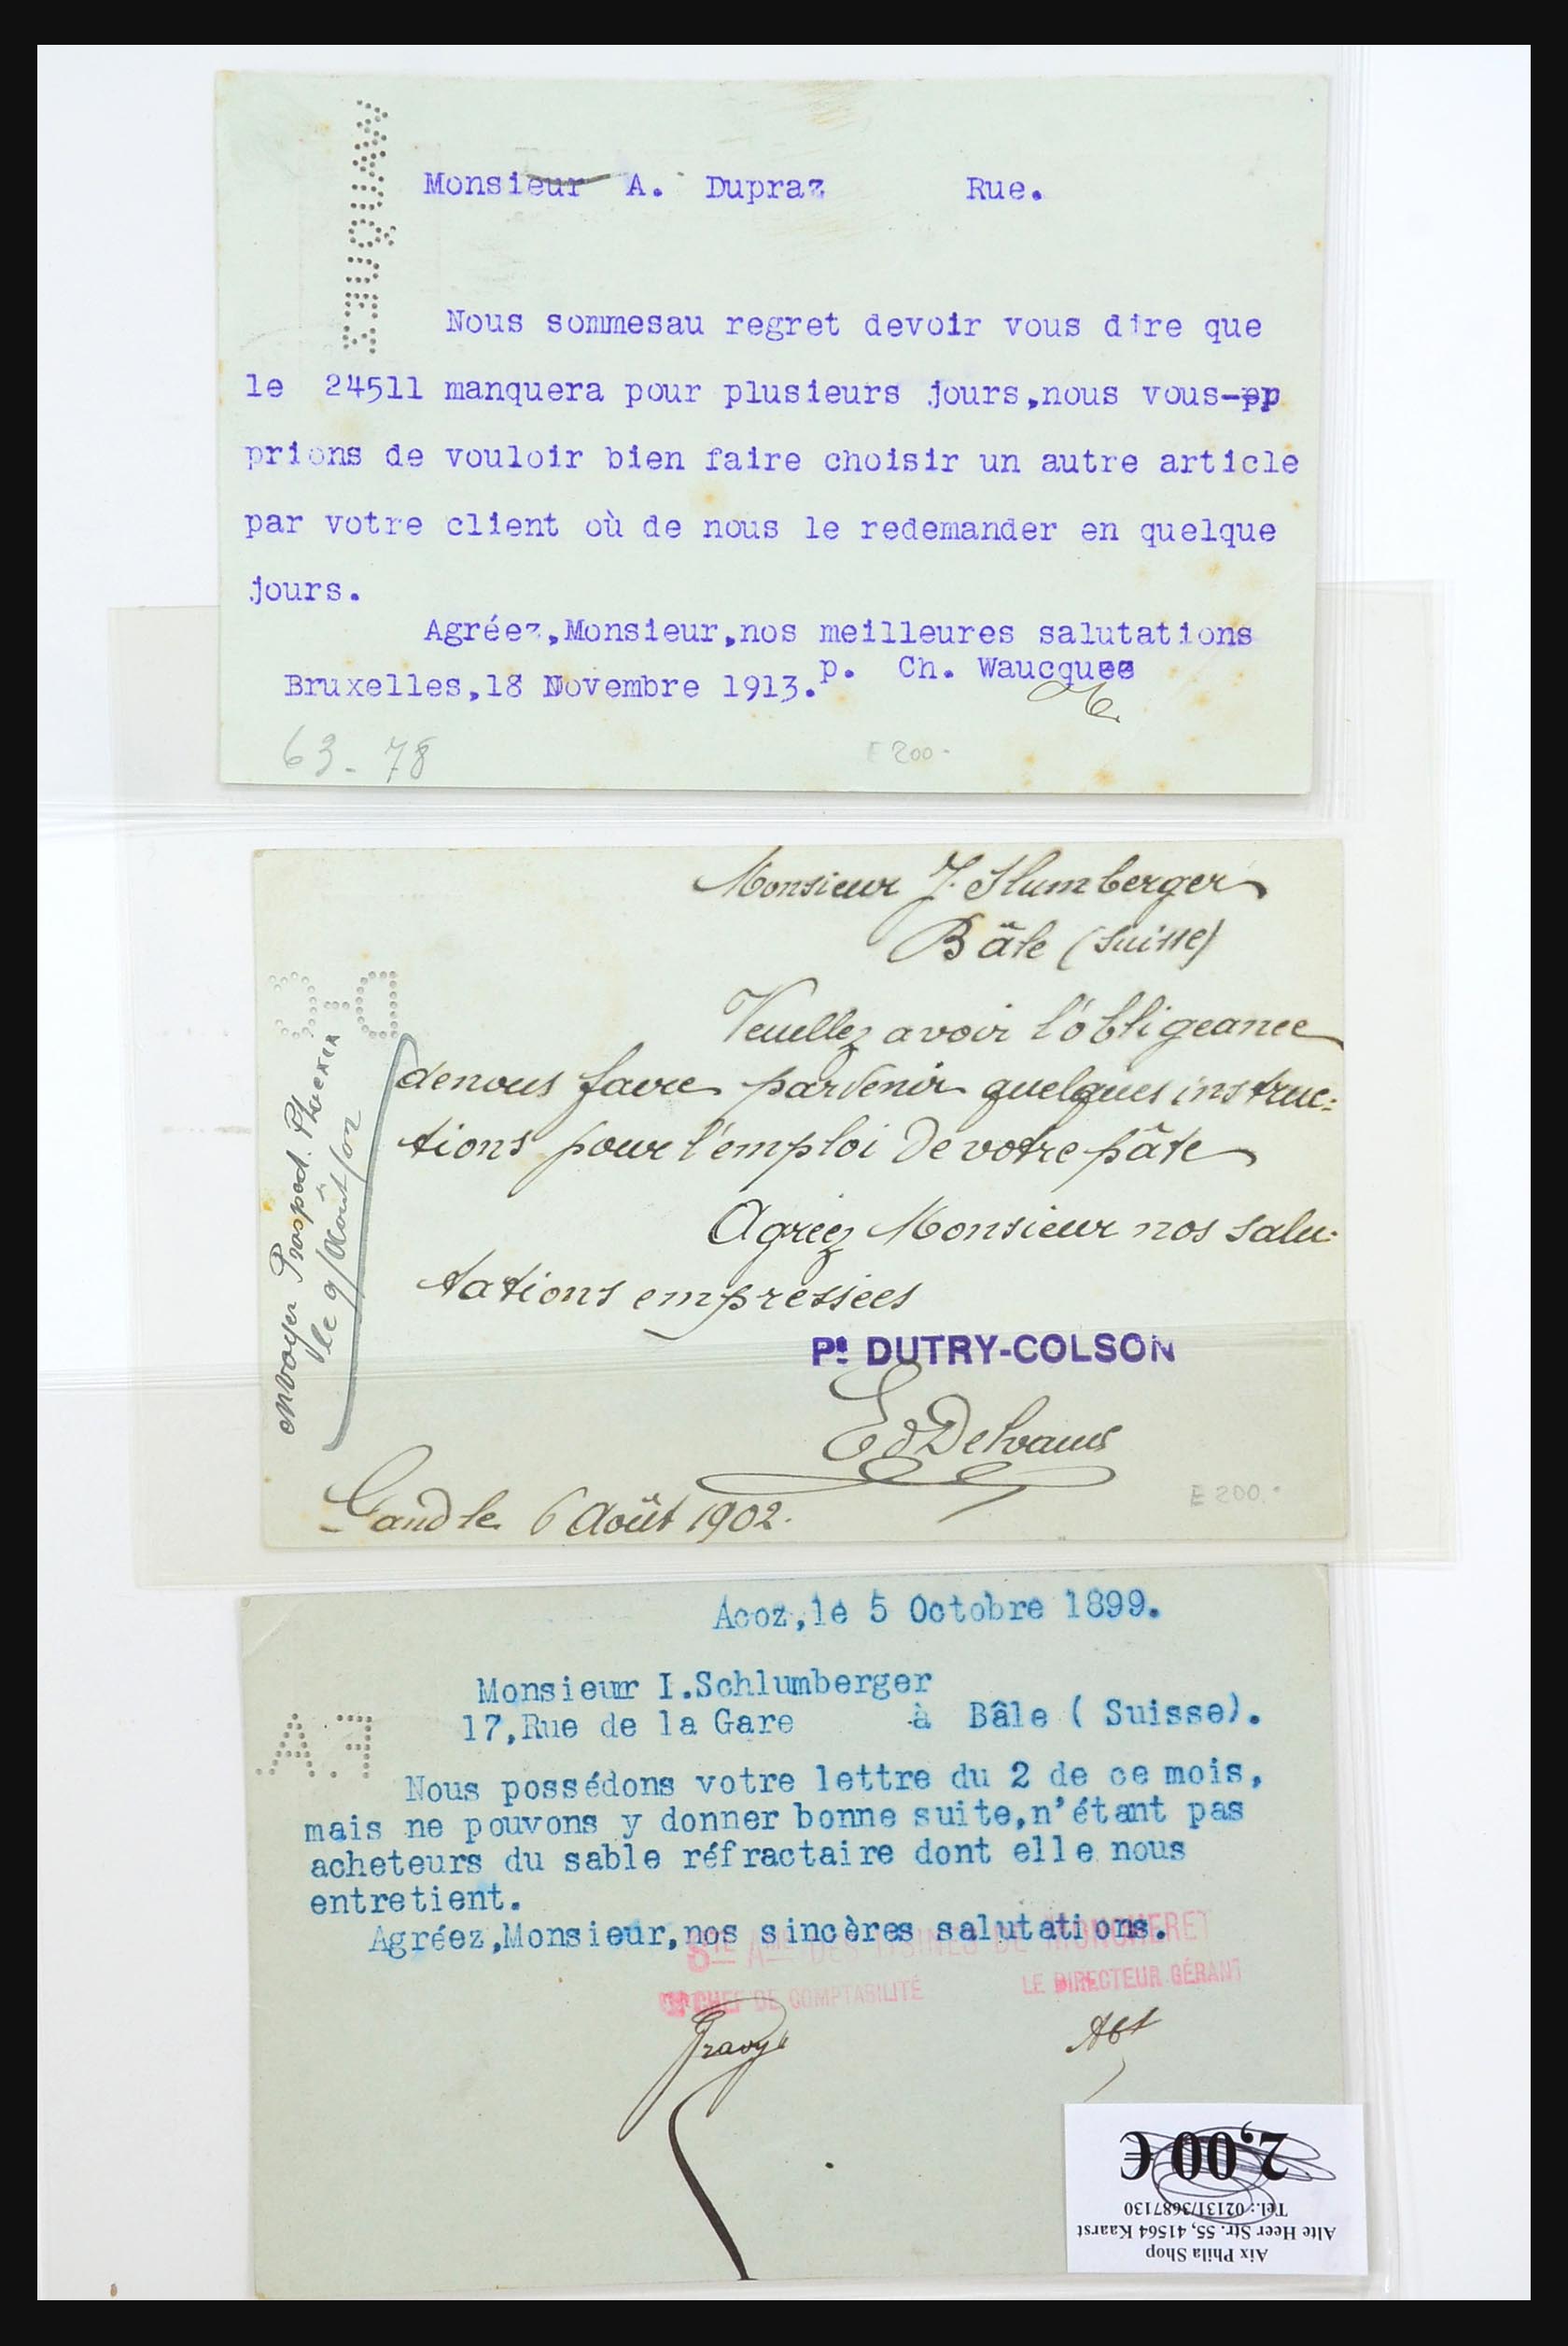 WAUQUEZ
Monsieur A. Dupraz Rue.
Nous sommesau regret devoir vous dire que
le 24511 manquera pour plusieurs jours,nous vous-pp
prions de vouloir bien faire choisir un autre article
par votre client où de nous le redemander en quelque
jours.
Agréez,Monsieur,nos meilleures salutations
p. Ch. Waucquez
Bruxelles,18 Novembre 1913.
63-78
E 200-
Monsieur J. Slumberger
Bâle (Suisse)
Veuillez avoir l'obligeance
de nous faire parvenir quelques instruc=
tions pour l'emploi de votre pâte
Agréez Monsieur nos salu=
tations empressées
Pr. DUTRY-COLSON
Ed Delvaux
Gand le 6 Août 1902.
E 200.-
envoyer Prosped.
le 9/Août/02
D.C
Acoz,le 5 Octobre 1899.
Monsieur I.Schlumberger
17,Rue de la Gare à Bâle ( Suisse).
F.A.
Nous possédons votre lettre du 2 de ce mois,
mais ne pouvons y donner bonne suite,n'étant pas
acheteurs du sable réfractaire dont elle nous
entretient.
Agréez,Monsieur,nos sincères salutations.
STE AME DES USINES DE MONCHERET
CHEF DE COMPTABILITÉ LE DIRECTEUR GÉRANT
2,00 €
Tel.: 02131/3687130
Alte Heer Str. 55, 41564 Kaarst
Aix Phila Shop